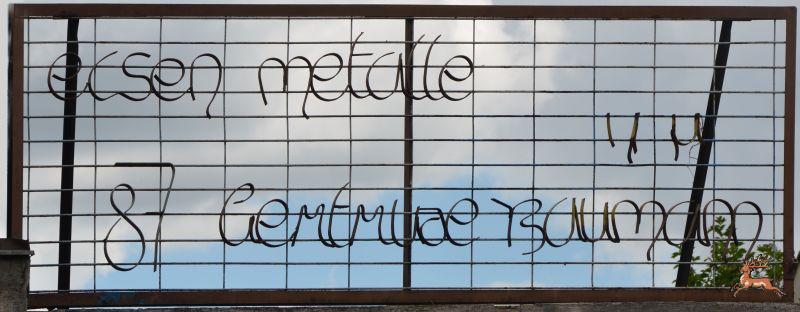 eisen metalle
87 Gertrude Baumann